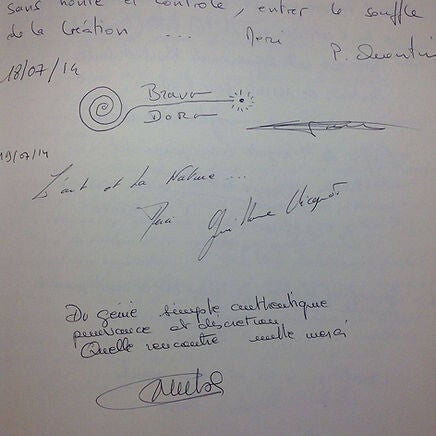 sans honte et contrôle, entrer le souffle
de la Création ... Merci
P. Quentin
18/07/14
Bravo
Dora
19/07/14
L'art et la Nature ...
Merci Guillaume
Du génie simple authentique
puissance et discrétion
Quelle rencontre mille merci